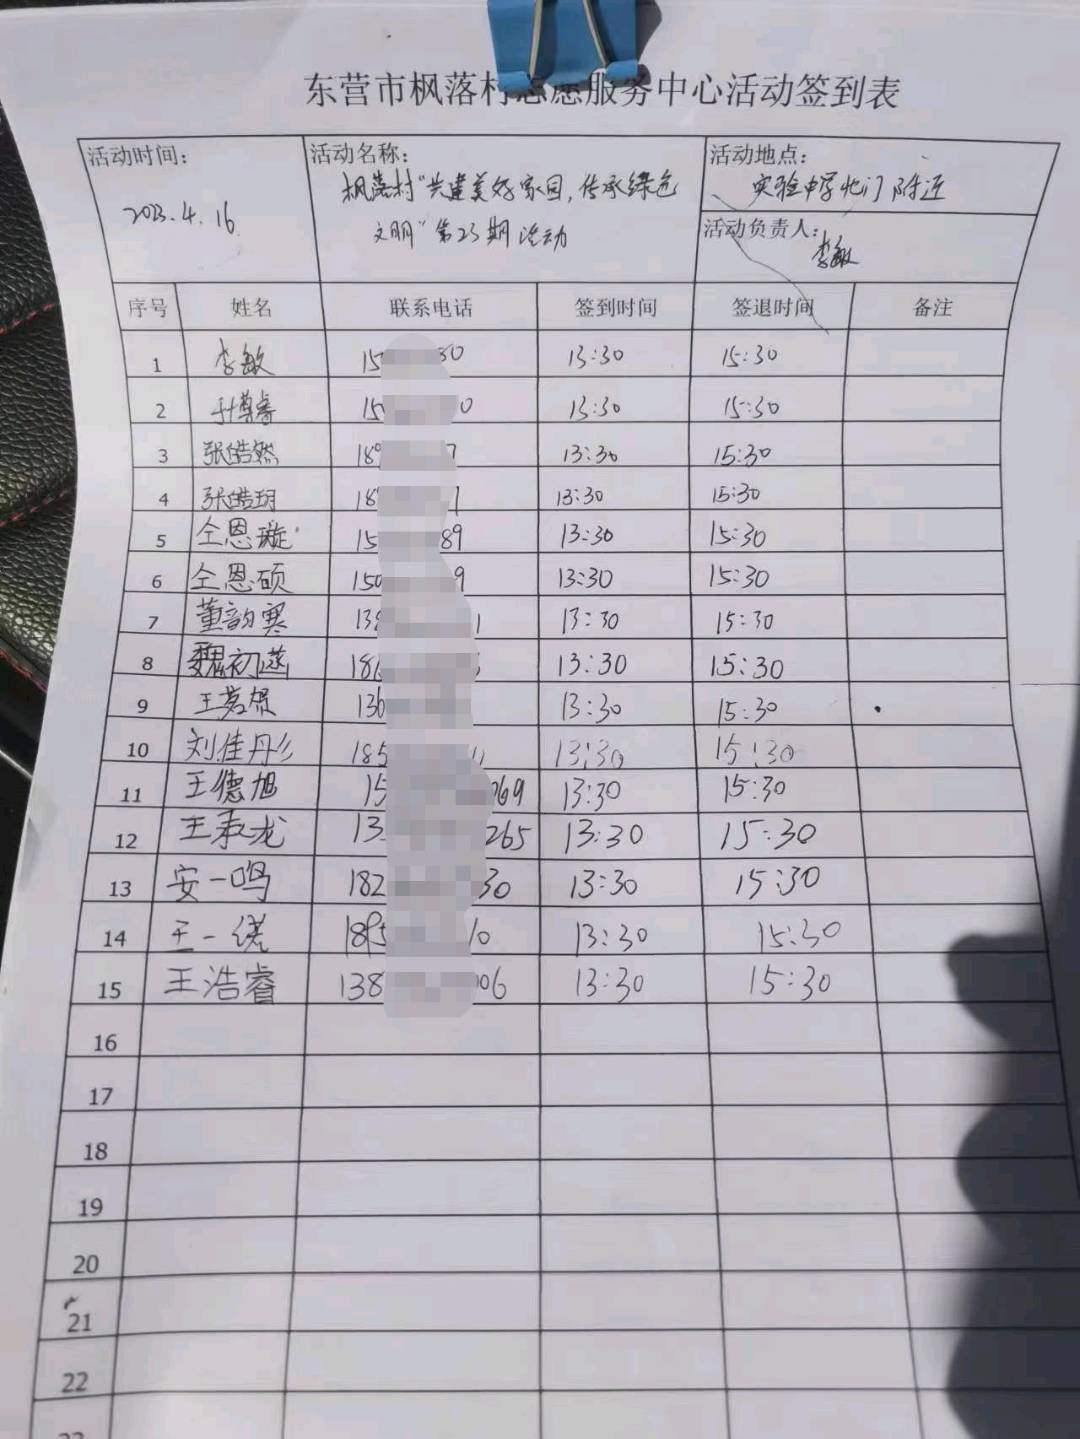 东营市枫落村志愿服务中心活动签到表
活动时间: 活动名称: 活动地点:
2023.4.16 枫落村“共建美好家园,传承绿色 实验中学北门附近
文明”第23期活动 活动负责人:
李敏
序号 姓名 联系电话 签到时间 签退时间 备注
1 李敏 15 80 13:30 15:30
2 于博睿 150 0 13:30 15:30
3 张皓然 189 7 13:30 15:30
4 张皓玥 189 1 13:30 15:30
5 仝恩璇 15 89 13:30 15:30
6 仝恩硕 150 9 13:30 15:30
7 董韵寒 138 1 13:30 15:30
8 魏初 18 13:30 15:30
9 王茗 136 13:30 15:30
10 刘佳彤 185 13:30 15:30
11 王德旭 15 069 13:30 15:30
12 王承龙 13 265 13:30 15:30
13 安一鸣 182 30 13:30 15:30
14 王一 1895 10 13:30 15:30
15 王浩睿 138 006 13:30 15:30
16
17
18
19
20
21
22
23